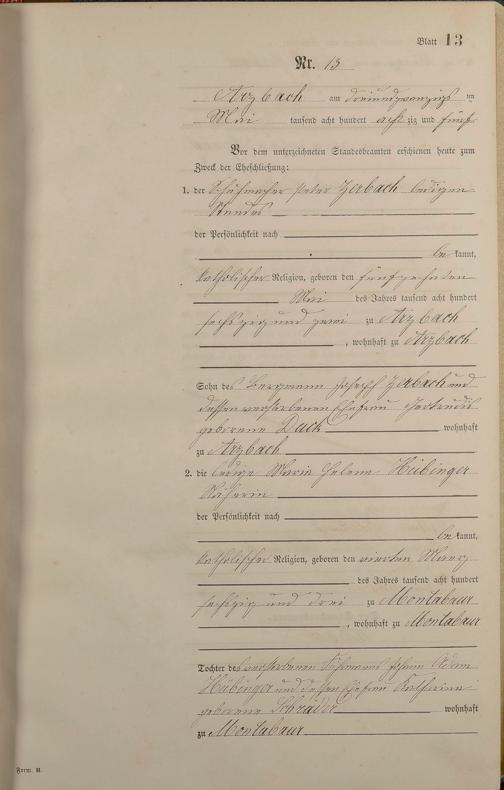 Blatt 13
Nr. 13
Arzbach am dreiundzwanzigsten
Mai tausend acht hundert achtzig und fünf
Vor dem unterzeichneten Standesbeamten erschienen heute zum
Zweck der Eheschließung:
1. der Schuhmacher Peter Zerbach ledigen
Standes
der Persönlichkeit nach
be kannt,
katholischer Religion, geboren den fünfzehnten
Mai des Jahres tausend acht hundert
sechszig und zwei zu Arzbach
, wohnhaft zu Arzbach
Sohn des Bergmann Joseph Zerbach und
dessen verstorbenen Ehefrau Gertrude
geborene Duck wohnhaft
zu Arzbach
2. die ledige Maria Helene Hübinger
Näherin
der Persönlichkeit nach
be kannt,
katholischer Religion, geboren den vierten März
des Jahres tausend acht hundert
sechszig und drei zu Montabaur
, wohnhaft zu Montabaur
Tochter des verstorbenen Johann Adam
Hübinger und dessen Ehefrau Katharina
geborene Schrader wohnhaft
zu Montabaur
Form. H.